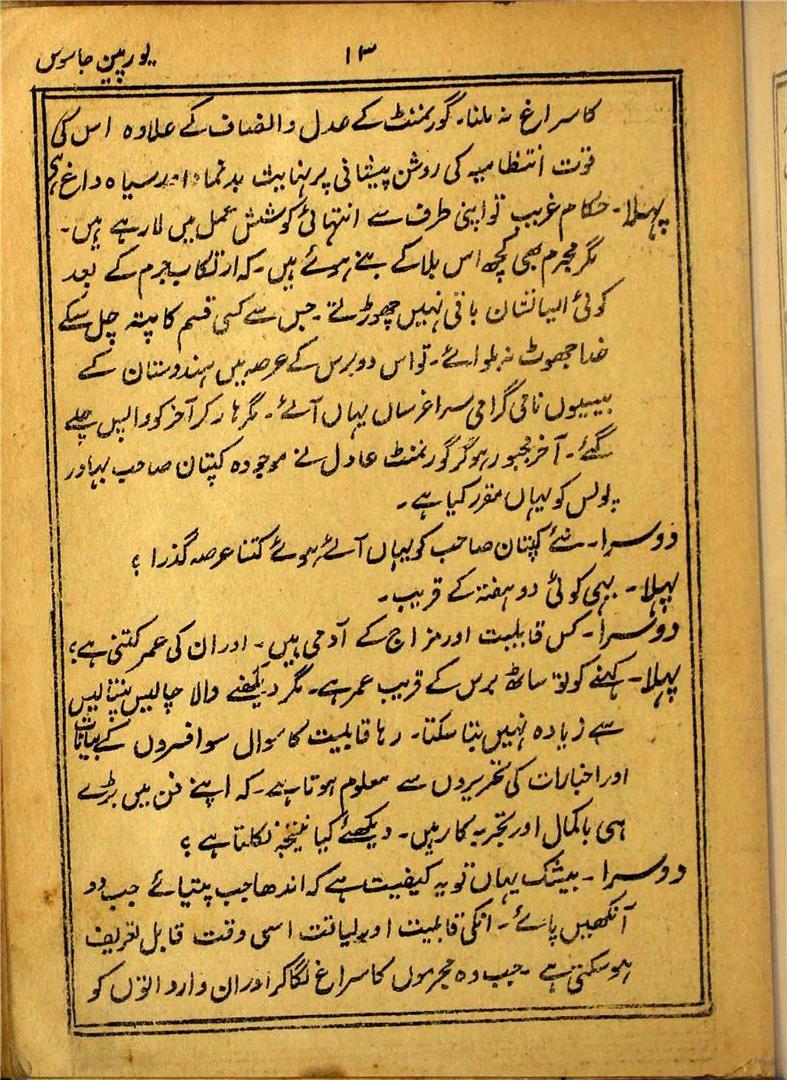 یورپین جاسوس
۱۳
کا سراغ نہ ملنا۔ گورنمنٹ کے عدل و انصاف کے علاوہ اس کی
قوت انتظامیہ کی روشن پیشانی پر نہایت بدنما اور سیاہ داغ ہے
پہلا۔ حکام غریب تو اپنی طرف سے انتہائی کوشش عمل میں لا رہے ہیں۔
مگر مجرم بھی کچھ اس بلا کے بنے ہوئے ہیں۔ کہ ارتکاب جرم کے بعد
کوئی ایسا نشان باقی نہیں چھوڑتے۔ جس سے کسی قسم کا پتہ چل سکے
خدا جھوٹ نہ بلوائے۔ تو اس دو برس کے عرصہ میں ہندوستان کے
بیسیوں نامی گرامی سراغرساں یہاں آئے۔ مگر ہار کر آخر کو واپس چلے
گئے۔ آخر مجبور ہو کر گورنمنٹ عادل نے موجودہ کپتان صاحب بہادر
پولس کو یہاں مقرر کیا ہے۔
دوسرا۔ نئے کپتان صاحب کو یہاں آئے ہوئے کتنا عرصہ گذرا ؟
پہلا۔ یہی کوئی دو ہفتہ کے قریب۔
دوسرا۔ کس قابلیت اور مزاج کے آدمی ہیں۔ اور ان کی عمر کتنی ہے؟
پہلا۔ کہنے کو تو ساٹھ برس کے قریب عمر ہے۔ مگر دیکھنے والا چالیس پنتالیس
سے زیادہ نہیں بتا سکتا۔ رہا قابلیت کا سوال سو افسروں کے بیانات
اور اخبارات کی تحریروں سے معلوم ہوتا ہے۔ کہ اپنے فن میں بڑے
ہی باکمال اور تجربہ کار ہیں۔ دیکھئے کیا نتیجہ نکلتا ہے ؟
دوسرا۔ بیشک یہاں تو یہ کیفیت ہے کہ اندھا جب پتیائے جب دو
آنکھیں پائے۔ انکی قابلیت اور لیاقت اسی وقت قابل تعریف
ہو سکتی ہے۔ جب وہ مجرموں کا سراغ لگا کر اور ان وارداتوں کو